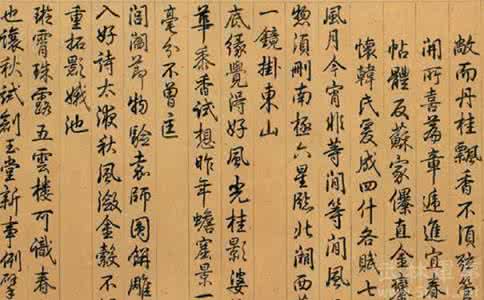 敞而丹桂飄香不須
開所喜薦章遞進宜春
帖體反蘇家儤直金
懷韓氏爰成四什各賦七
風月今宵非等閒等閒風
須刪南極六星臨北西
一鏡掛東山
底緣覺得好風光桂影婆
華黍香試想昨年蟾塞景一
毫分不曾
閶闔節物驗嘉師圓餅雕
入好詩太液秋風金縠不
重拓影娥池
璇霄珠露五雲樓可識春
也讓秋試創玉堂新事例擘